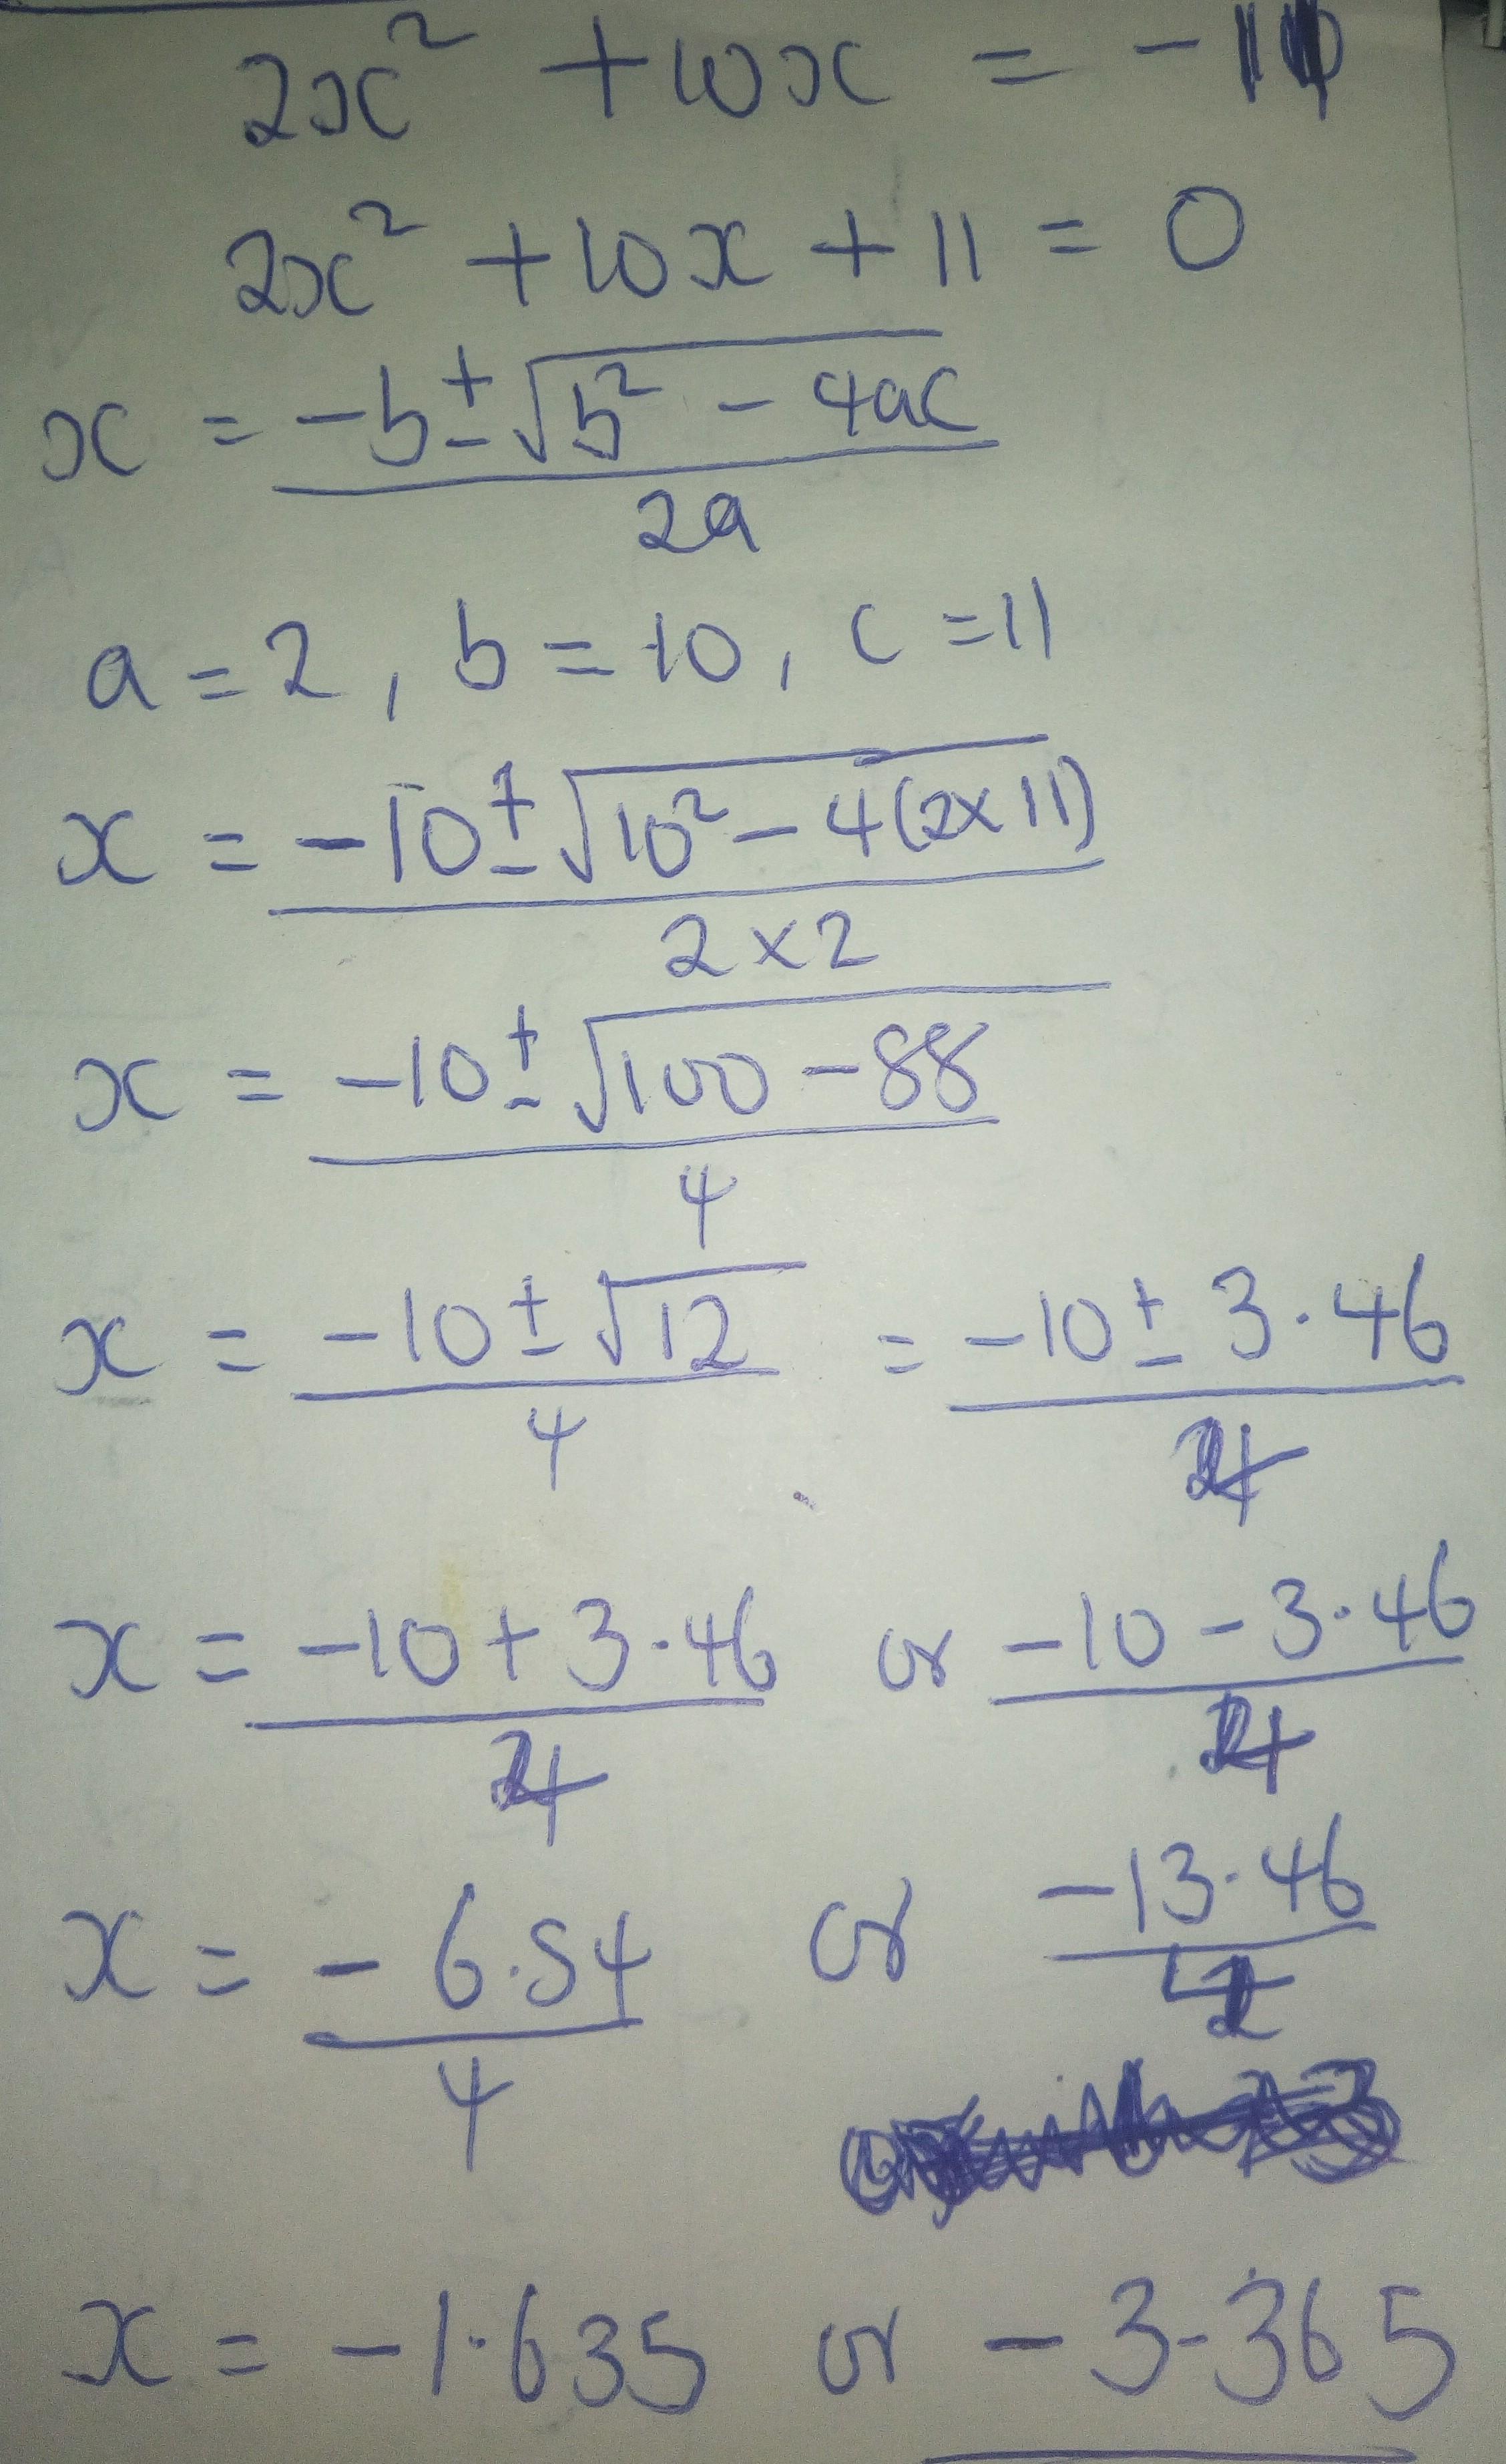 2x² + 10x = -11
2x² + 10x + 11 = 0
x = (-b ± √(b² - 4ac)) / 2a
a = 2, b = 10, c = 11
x = (-10 ± √(10² - 4(2×11))) / (2 × 2)
x = (-10 ± √(100 - 88)) / 4
x = (-10 ± √12) / 4 = (-10 ± 3.46) / 4
x = (-10 + 3.46) / 4 or (-10 - 3.46) / 4
x = -6.54 / 4 or -13.46 / 4
x = -1.635 or -3.365